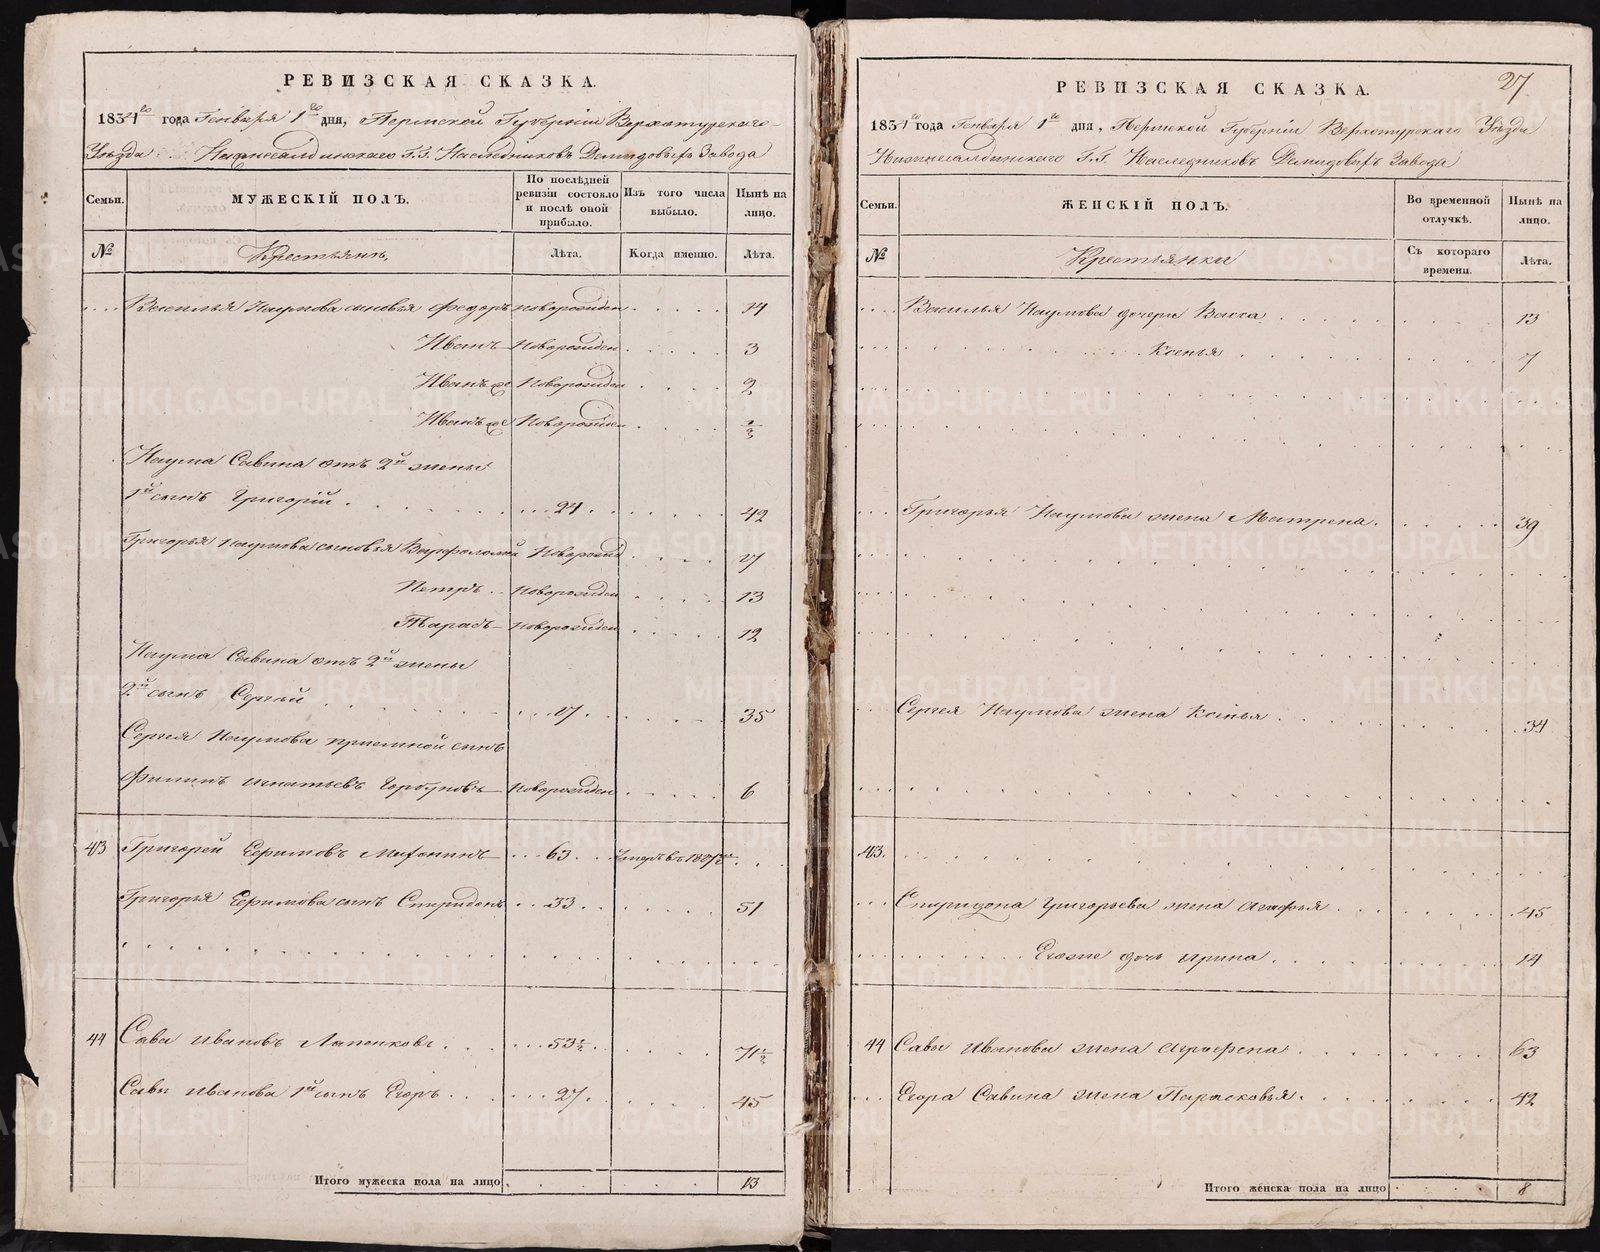 РЕВИЗСКАЯ СКАЗКА.
1834го года Генваря 1го дня, Пермской Губернiи Верхотурскаго
Уѣзда Нижнесалдинскаго Г.Г. Наследниковъ Демидовыхъ Завода
Семьи.
МУЖЕСКIЙ ПОЛЪ.
По послѣдней ревизiи состояло и послѣ оной прибыло.
Изъ того числа выбыло.
Нынѣ на лицо.
№
Крестьянъ,
Лѣта.
Когда именно.
Лѣта.
Василья Наумова сыновья Федоръ новорожден 14
Иванъ Новорожден 3
Иванъ же Новорожден 2
Иванъ же Новорожден
Наума Савина отъ 2й жены
1й сынъ Григорiй 24 42
Григорья Наумова сыновья Варфоломей Новорожд 17
Петръ новорожден 13
Тарасъ новорожден 12
Наума Савина отъ 2й жены
2й сынъ Сергей 17 35
Сергея Наумова приемной сынъ
Филипъ Игнатьевъ Горбуновъ новорожден 6
43 Григорей Ефимовъ 63 Умеръ въ
Григорья Ефимова сынъ Спиридонъ 33 51
44 Сава Ивановъ Лапенковъ 53½ 71½
Савы Иванова 1й сынъ Егоръ 27 45
Итого мужеска пола на лицо 13
27.
РЕВИЗСКАЯ СКАЗКА.
1834го года Генваря 1го дня, Пермской Губернiи Верхотурскаго Уѣзда
Нижнесалдинскаго Г.Г. Наследниковъ Демидовыхъ Завода
Семьи.
ЖЕНСКIЙ ПОЛЪ.
Во временной отлучкѣ.
Нынѣ на лицо.
№
Крестьянки
Съ котораго времени.
Лѣта.
Василья Наумова дочери Васса 13
Ксенья 7
Григорья Наумова жена Матрена. 39
Сергея Наумова жена Ксенья 34
43.
Спиридона Григорьева жена Агафья 45
Егоже дочь Ирина 14
44 Савы Иванова жена Аграфена 63
Егора Савина жена Парасковья. 42
Итого женска пола на лицо 8
METRIKI.GASO-URAL.RU